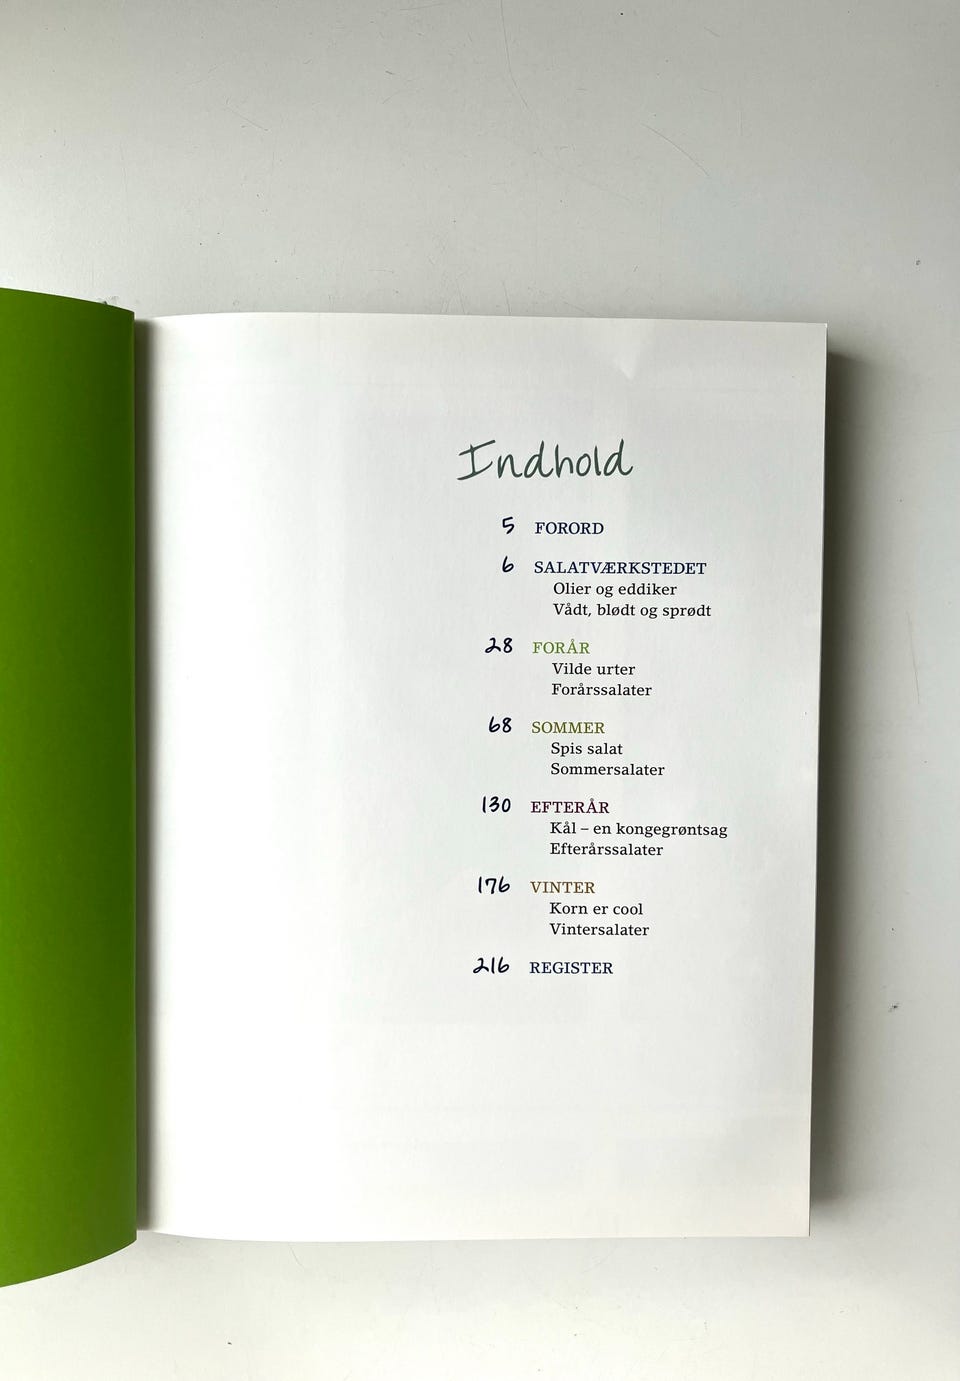 Indhold
5 FORORD
6 SALATVÆRKSTEDET
Olier og eddiker
Vådt, blødt og sprødt
28 FORÅR
Vilde urter
Forårssalater
68 SOMMER
Spis salat
Sommersalater
130 EFTERÅR
Kål – en kongegrøntsag
Efterårssalater
176 VINTER
Korn er cool
Vintersalater
216 REGISTER